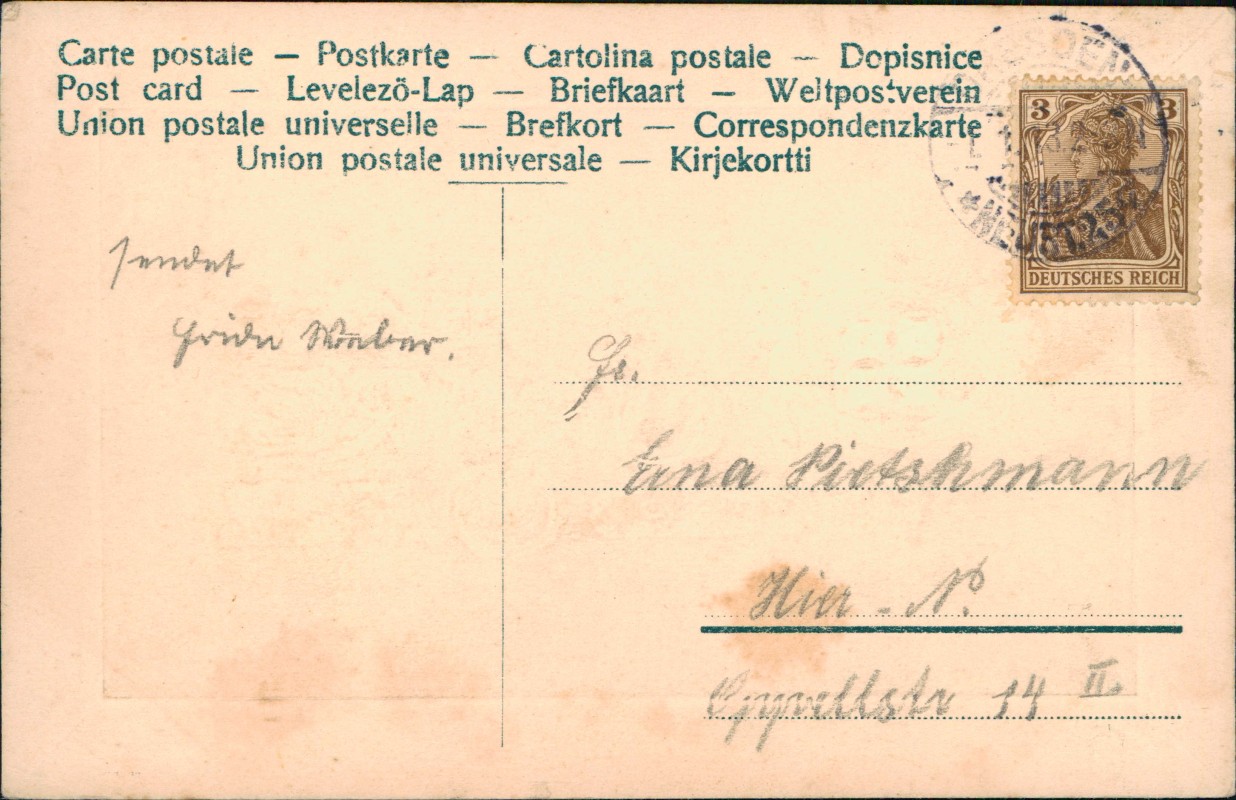 Carte postale — Postkarte — Cartolina postale — Dopisnice
Post card — Levelező-Lap — Briefkaart — Weltpostverein
Union postale universelle — Brefkort — Correspondenzkarte
Union postale universale — Kirjekortti
3 3
DEUTSCHES REICH
DRESDEN
NEUST. 25
sendet
Frida Weber.
Fr.
Erna Pietschmann
Hier - N.
Oppellstr 14 II.